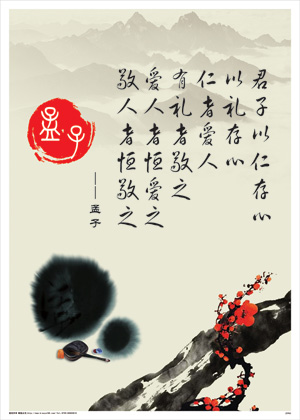 君子以仁存心
以礼存心
仁者爱人
有礼者敬之
爱人者恒爱之
敬人者恒敬之
——孟子
孟子